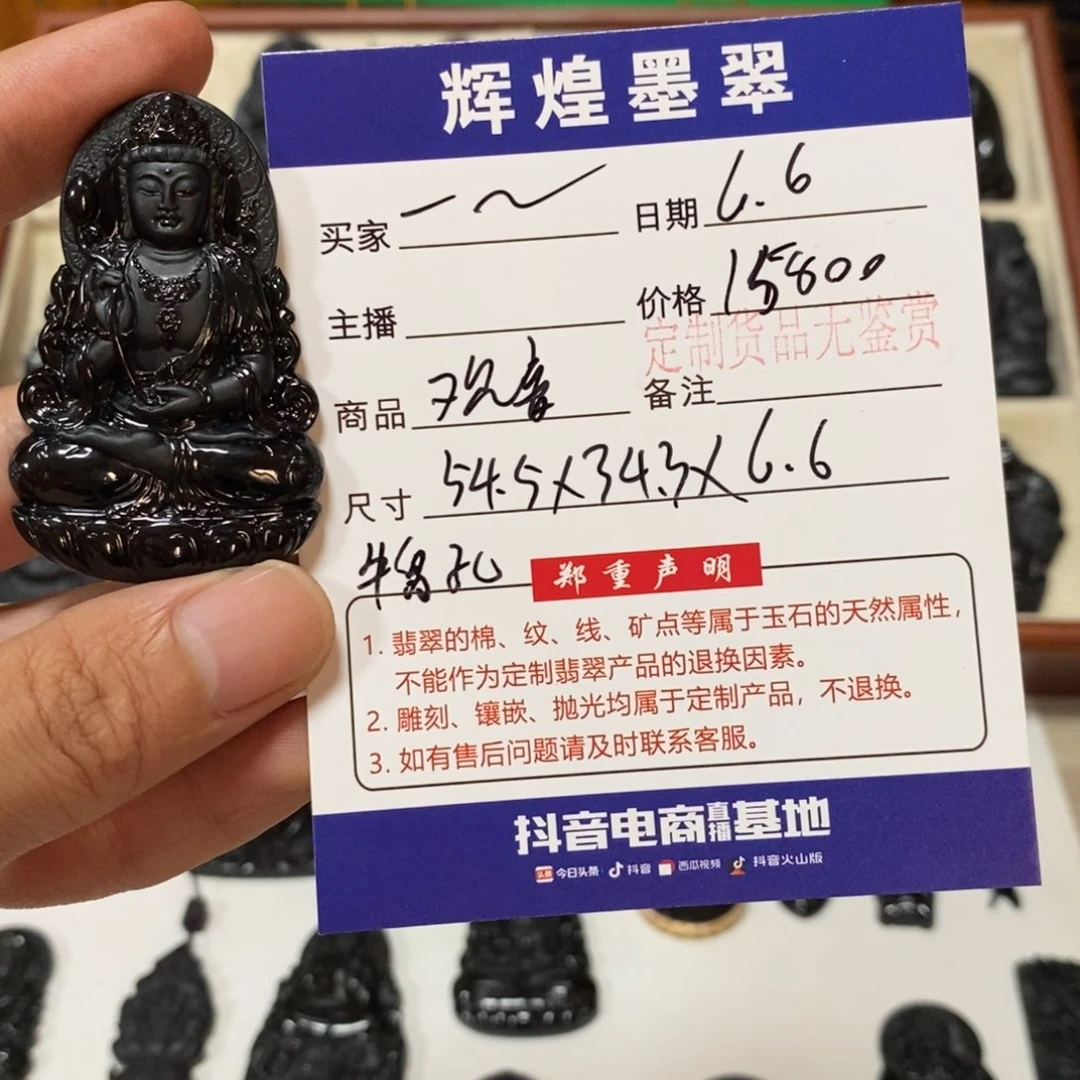 辉煌墨翠
买家 一~ 日期 6.6
主播 价格 15800
定制货品无鉴赏
商品 观音 备注
尺寸 54.5X34.3X6.6
牛鼻孔
郑重声明
1. 翡翠的棉、纹、线、矿点等属于玉石的天然属性，
不能作为定制翡翠产品的退换因素。
2. 雕刻、镶嵌、抛光均属于定制产品，不退换。
3. 如有售后问题请及时联系客服。
抖音电商直播基地
头条 今日头条 抖音 西瓜视频 抖音火山版